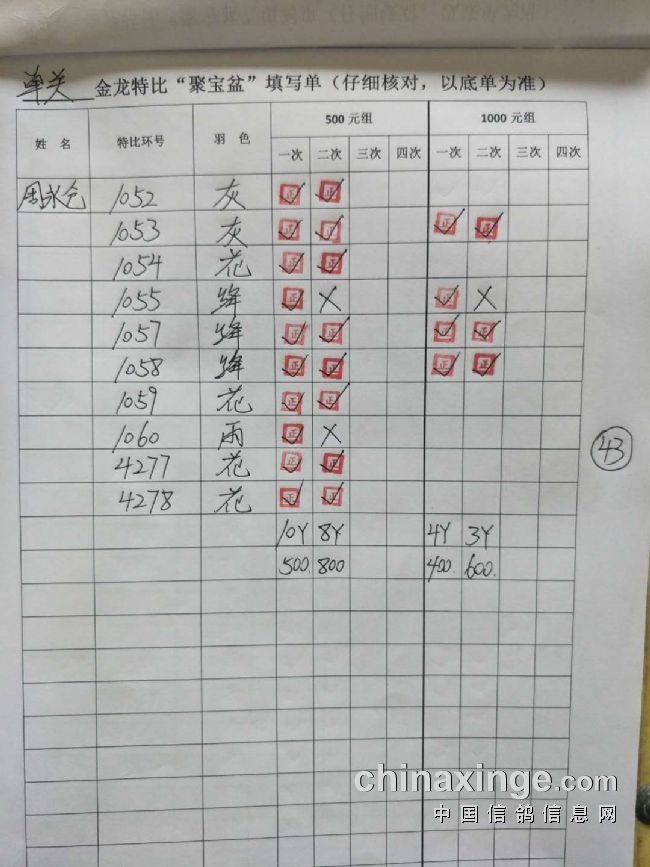 单关 金龙特比“聚宝盆”填写单（仔细核对，以底单为准）
姓 名 特比环号 羽 色 500 元组 1000 元组
一次 二次 三次 四次 一次 二次 三次 四次
周永仓 1052 灰 正 正
1053 灰 正 正 正 正
1054 花 正 正
1055 绛 正 X 正 X
1057 绛 正 正 正 正
1058 绛 正 正 正 正
1059 花 正 正
1060 雨 正 X
4277 花 正 正
4278 花 正 正
10Y 8Y 4Y 3Y
500. 800 400. 600.
43
chinaxinge.com
中国信鸽信息网